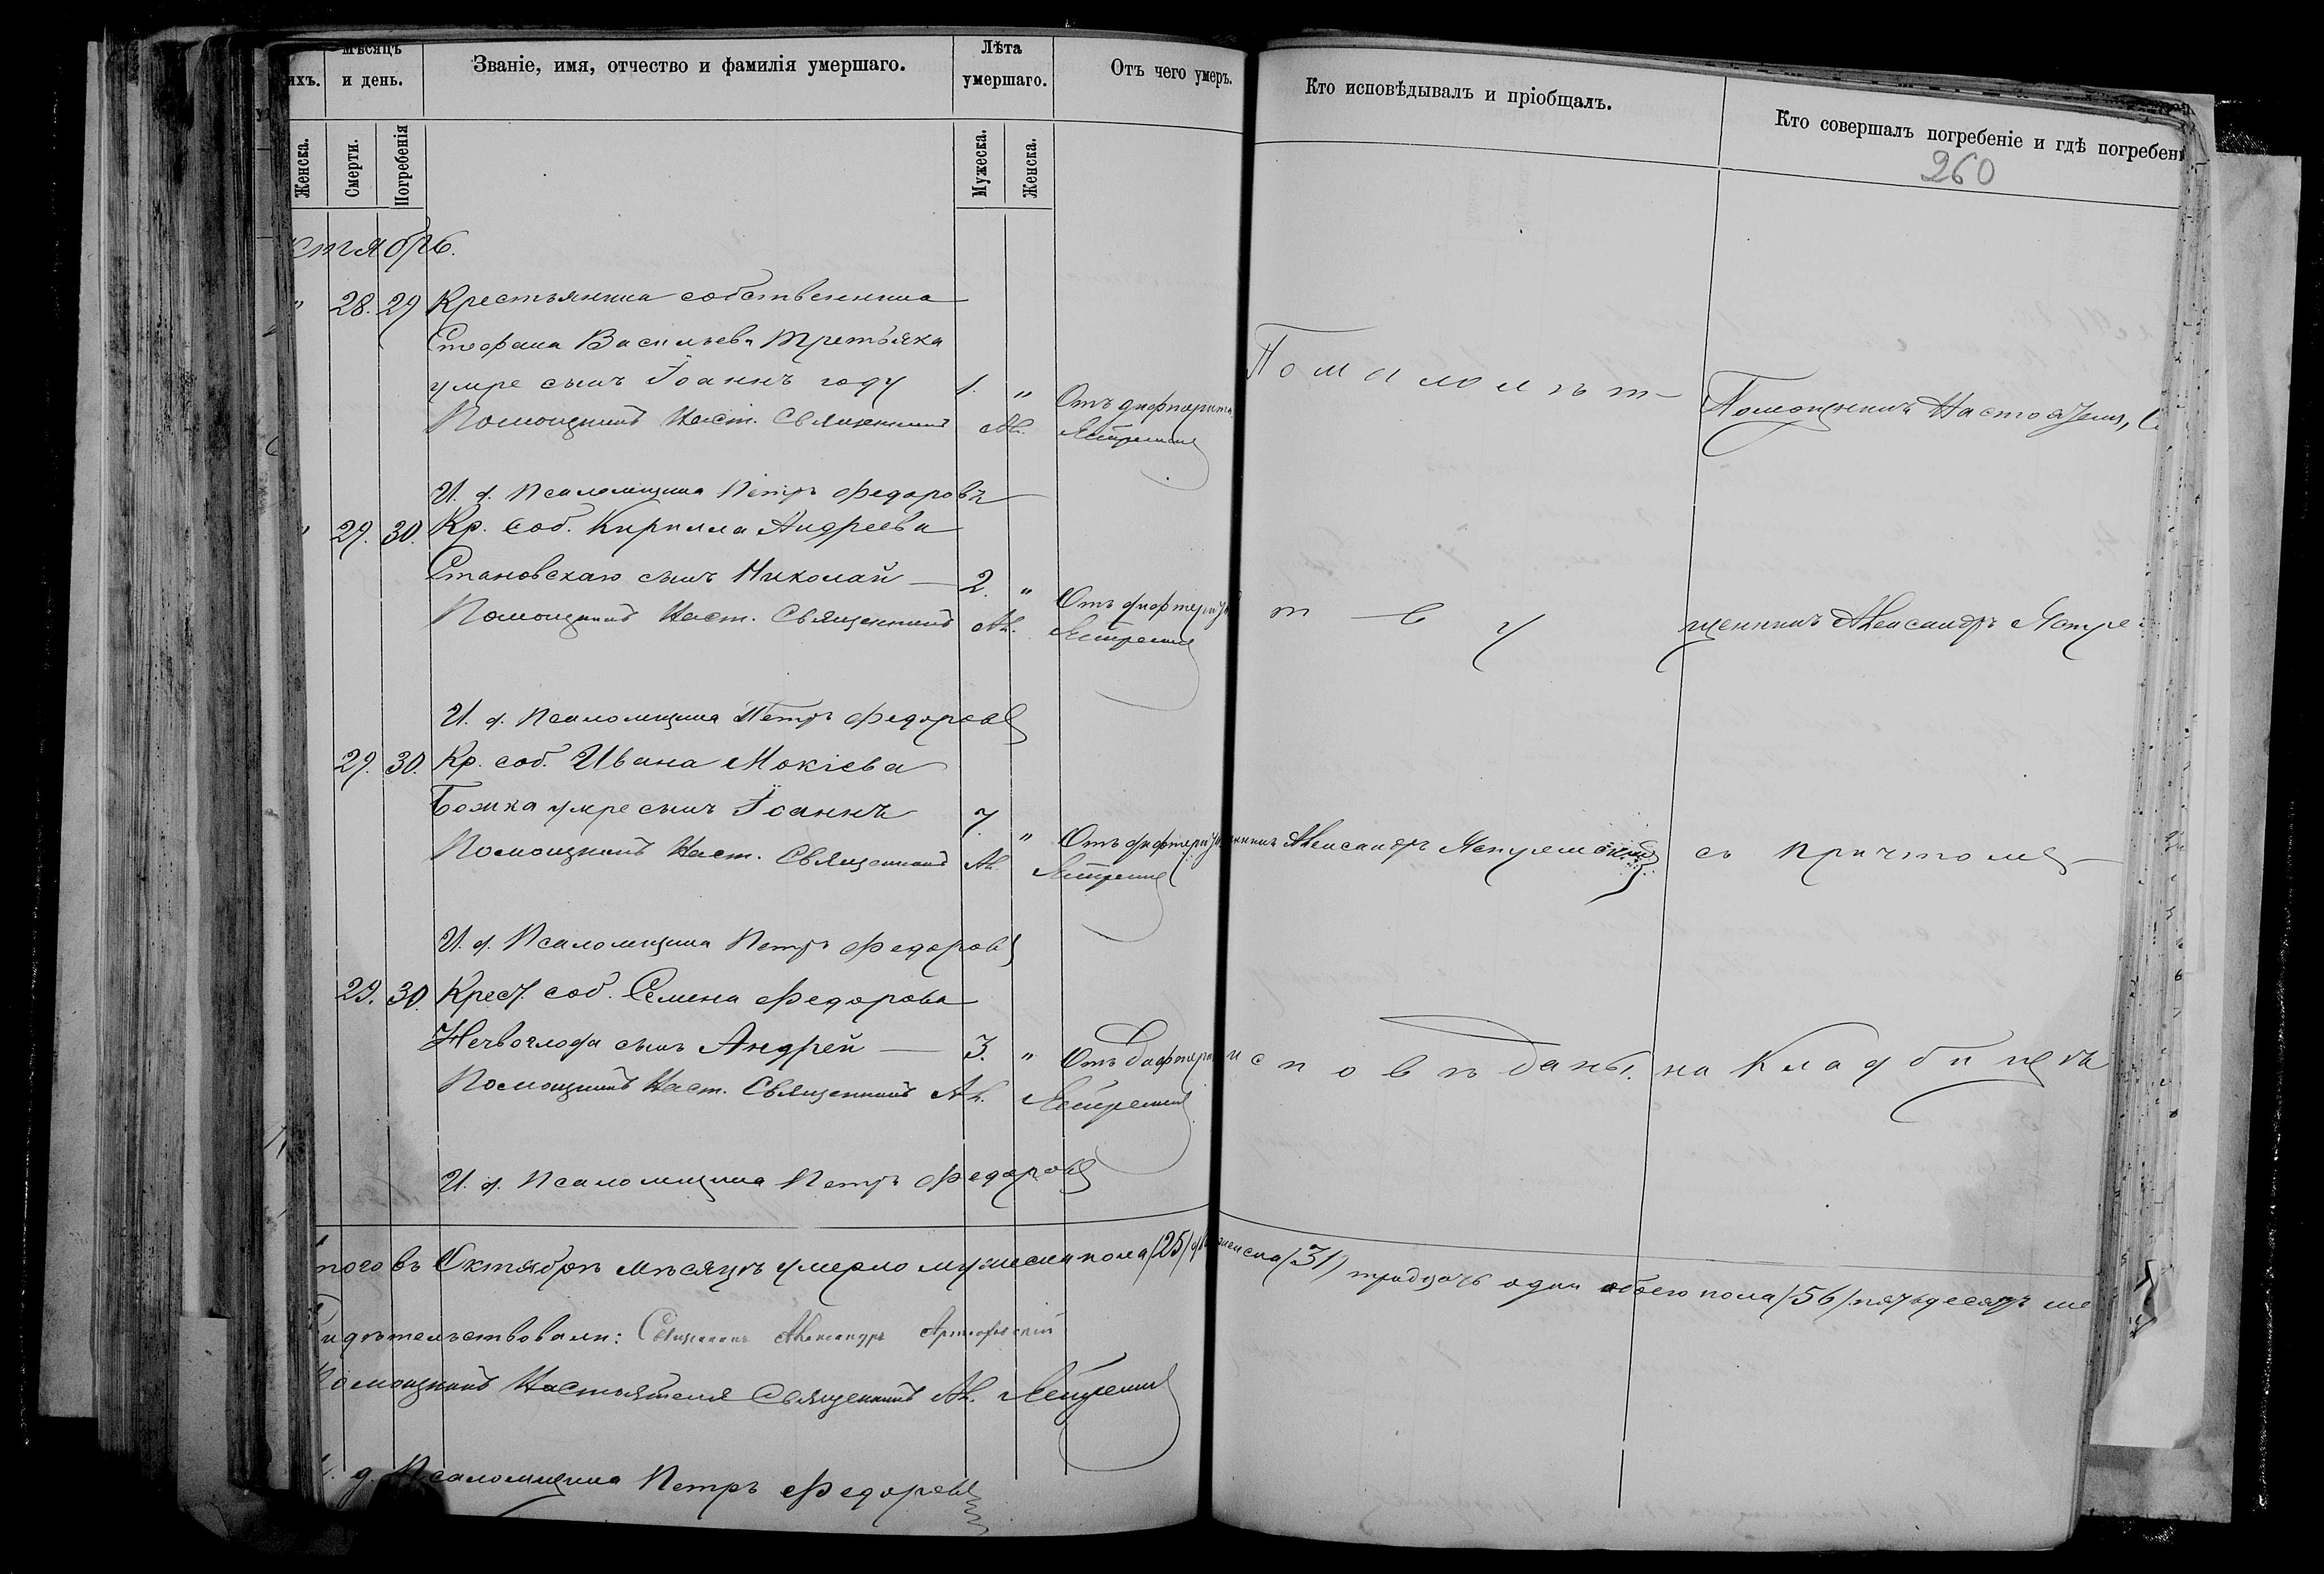 ихъ.
мѣсяцъ
и день.
Званіе, имя, отчество и фамилія умершаго.
Лѣта
умершаго.
Отъ чего умеръ.
Кто исповѣдывалъ и пріобщалъ.
Кто совершалъ погребеніе и гдѣ погребен
260
Женска.
Смерти.
Погребенія
Мужеска.
Женска.
ктябрь.
" 28. 29 Крестьянина собственника
Стефана Васильева Третьяка
умре сынъ Іоаннъ году 1. " Отъ дифтерита
Помощникъ Наст. Священникъ Ал.
И. д. Псаломщика Петръ Федоровъ
" 29. 30. Кр. соб. Кирилла Андреева
Становскаго сынъ Николай — 2. " Отъ дифтерит
Помощникъ Наст. Священникъ Ал.
И. д. Псаломщика Петръ Федоровъ
29. 30. Кр. соб. Ивана Мокіева
Божка умре сынъ Іоаннъ 7. " Отъ дифтерит
Помощникъ Наст. Священникъ Ал.
И. д. Псаломщика Петръ Федоровъ
29. 30. Крест. соб. Семена Федорова
сынъ Андрей — 3. " Отъ дифтери
Помощникъ Наст. Священникъ Ал.
И. д. Псаломщика Петръ Федоровъ
По малолѣт
ству
нникъ Александръ
исповѣданы.
Помощникъ Настоятеля, С
щенникъ Александръ
съ причтомъ
на кладбищѣ
того въ Октябрѣ мѣсяцѣ умерло мужеска пола /25/ женска /31/ тридцать одна обоего пола /56/ пятьдесятъ ше
видѣтельствовали: Священникъ Александръ
Помощникъ Настоятеля Священникъ Ал.
д. Псаломщика Петръ Федоровъ